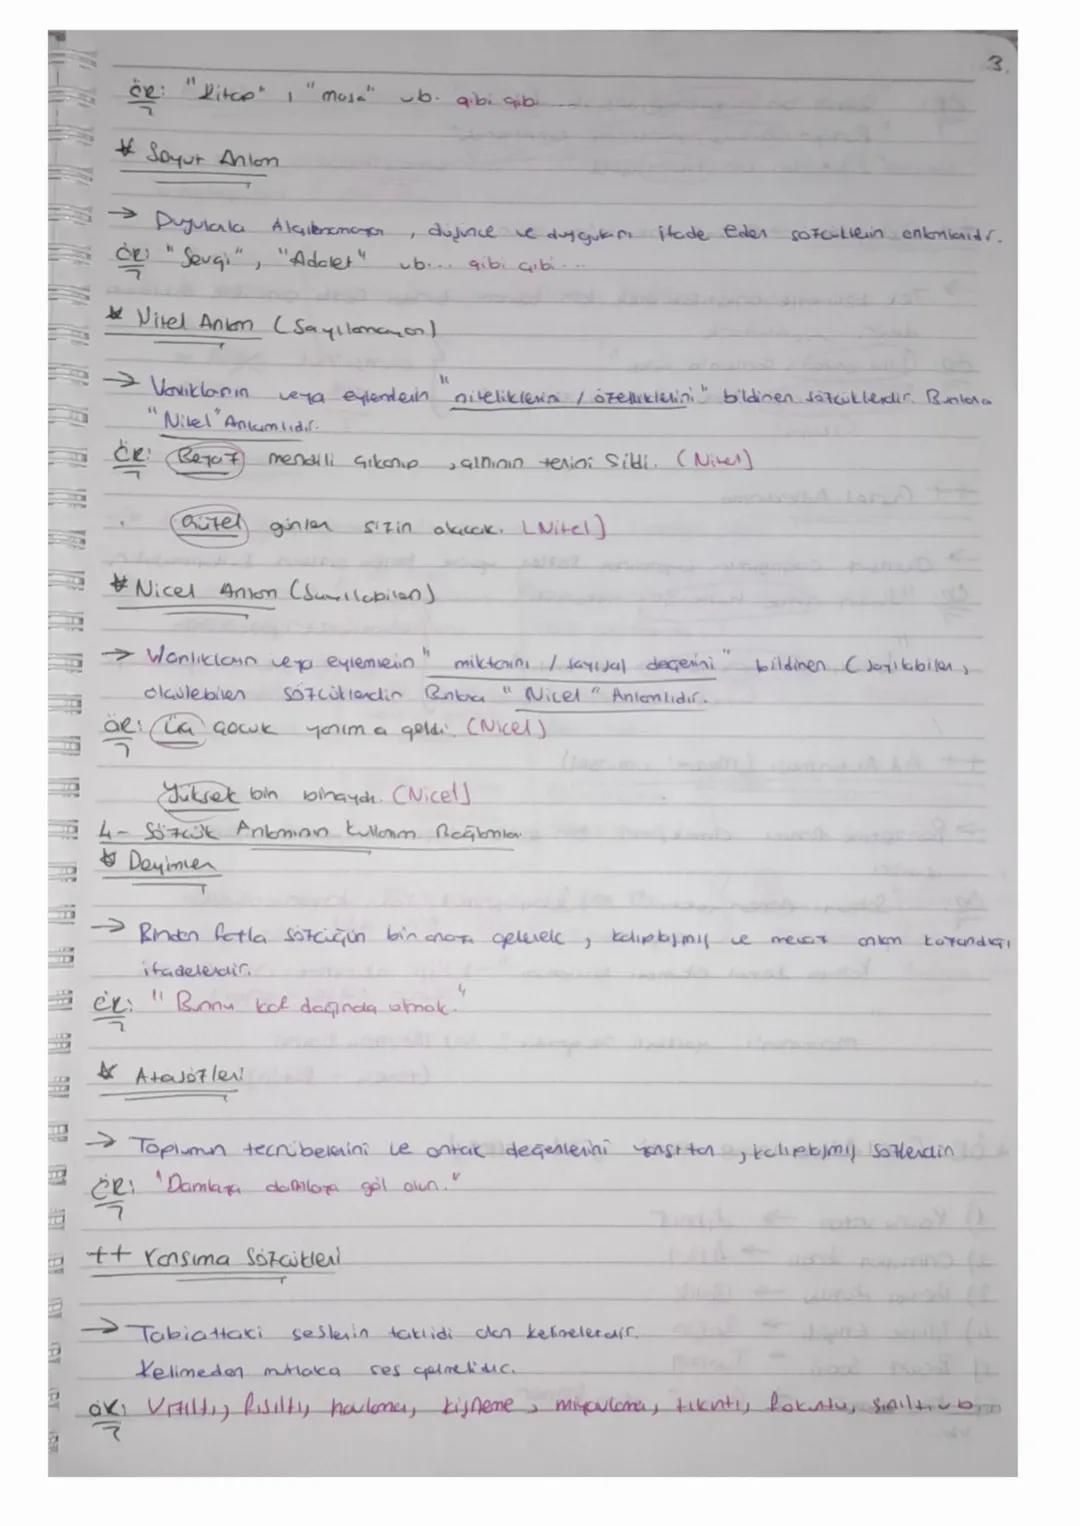 3.
ÖR: "Kitap", "masa" vb. gibi gibi ...
* Soyut Anlam
→ Duyularla Algılanamayan, düşünce ve duyguları ifade eden sözcüklerin anlamlarıdır.
ÖR: "Sevgi", "Adalet" vb... gibi gibi...
* Nitel Anlam (Sayılamayan)
→ Varlıkların veya eylemlerin "niteliklerini / özelliklerini" bildiren sözcüklerdir. Bunlara
"Nitel" Anlamlıdır.
ÖR: Beyaz mendili çıkarıp, alnının terini sildi. (Nitel)
Güzel günler sizin olacak. (Nitel)
* Nicel Anlam (Sayılabilen)
→ Varlıkların veya eylemlerin "miktarını / sayısal değerini" bildiren (sayılabilen,
ölçülebilen sözcüklerdir. Bunlara "Nicel" Anlamlıdır.
ÖR: Üç çocuk yanıma geldi. (Nicel)
Yüksek bir binaydı. (Nicel)
4- Sözcük Anlamının Kullanım Bağlamları
* Deyimler
→ Birden fazla sözcüğün bir araya gelerek, kalıplaşmış ve mecaz anlam kazandığı
ifadelerdir.
ÖR: "Burnu kaf dağında olmak."
* Atasözleri
→ Toplumun tecrübelerini ve ortak değerlerini yansıtan, kalıplaşmış sözlerdir
ÖR: "Damlaya damlaya göl olur."
++ Yansıma Sözcükleri
→ Tabiattaki seslerin taklidi olan kelimelerdir.
Kelimeden mutlaka ses gelmelidir.
ÖR: Vızıltı, fısıltı, havlama, kişneme, miyavlama, tıkırtı, fokurtu, şırıltı vb